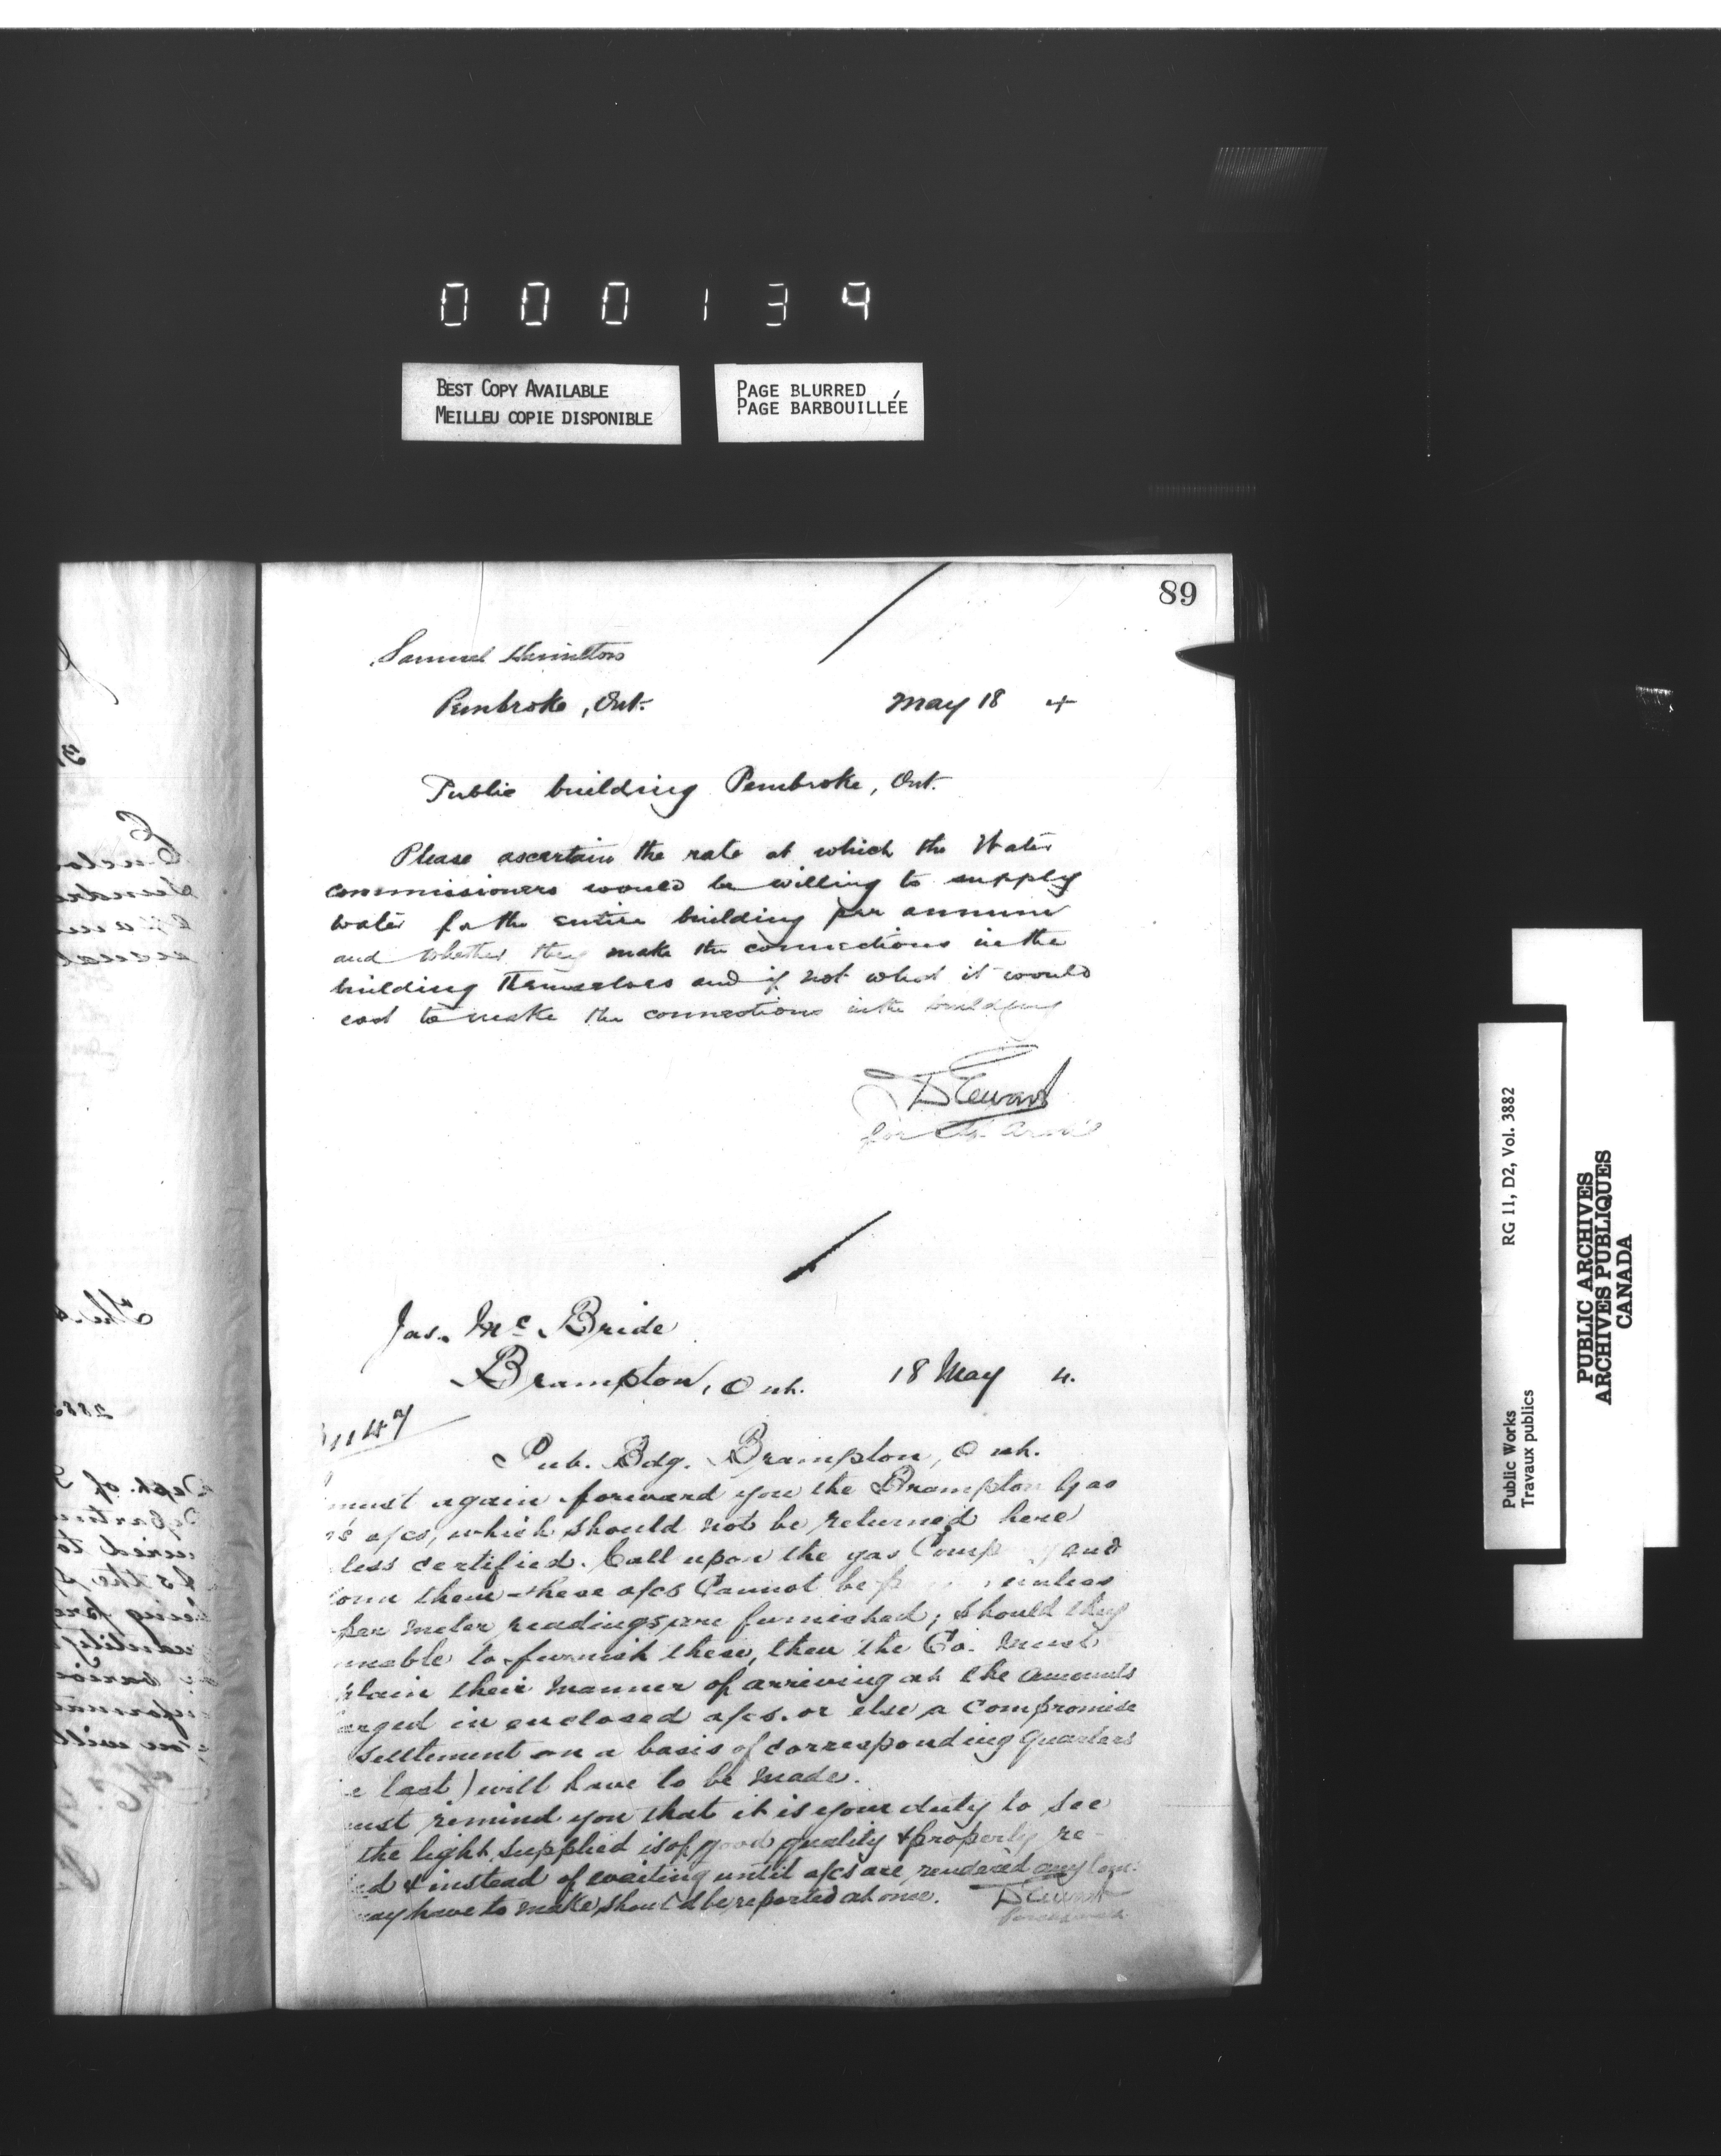 000139
BEST COPY AVAILABLE
MEILLEU COPIE DISPONIBLE
PAGE BLURRED
PAGE BARBOUILLÉE
89
Samuel
Pembroke, Ont. May 18 4
Public building Pembroke, Ont.
Please ascertain the rate at which the Water
commissioners would be willing to supply
water for the entire building per annum
and whether they make the connections in the
building themselves and if not what it would
cost to make the connections in the building
D Ewart
for Ch. Arch't
Jas. McBride
Brampton, Ont. 18 May 4.
Pub. Bdg. Brampton, Ont.
must again forward you the Brampton Gas
a/cs, which should not be returned here
less certified. Call upon the gas Comp and
them these a/cs Cannot be unless
per meter readings are furnished; should they
unable to furnish these, then the Co. must
plain their manner of arriving at the amounts
arged in enclosed a/cs. or else a compromise
settlement on a basis of corresponding quarters
e last) will have to be made.
ust remind you that it is your duty to see
the light supplied is of good quality & properly re-
ed & instead of waiting until a/cs are rendered any com:
may have to make should be reported at once. D Ewart
Public Works RG 11, D2, Vol. 3882
Travaux publics
PUBLIC ARCHIVES
ARCHIVES PUBLIQUES
CANADA